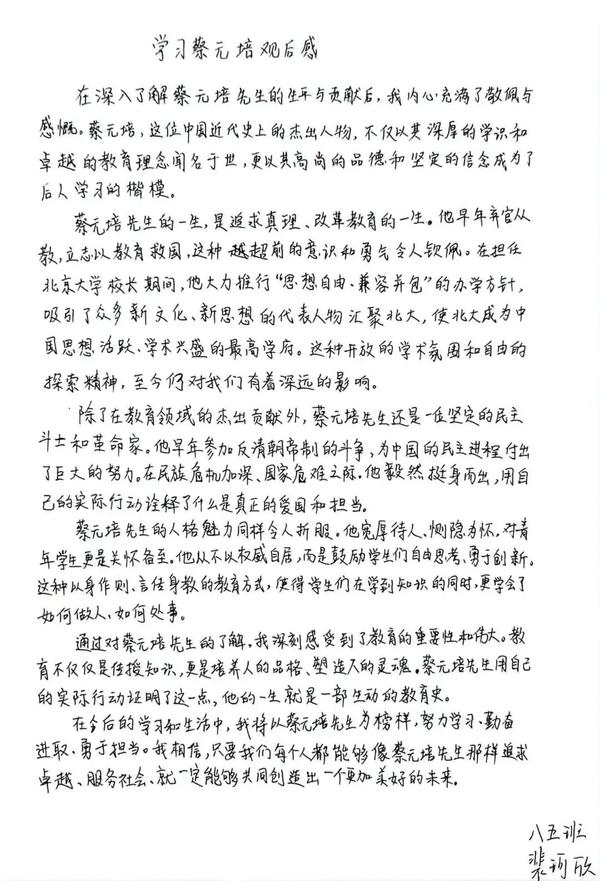 学习蔡元培观后感
在深入了解蔡元培先生的生平与贡献后，我内心充满了敬佩与
感慨。蔡元培，这位中国近代史上的杰出人物，不仅以其深厚的学识和
卓越的教育理念闻名于世，更以其高尚的品德和坚定的信念成为了
后人学习的楷模。
蔡元培先生的一生，是追求真理、改革教育的一生。他早年弃官从
教，立志以教育救国，这种越超前的意识和勇气令人钦佩。在担任
北京大学校长期间，他大力推行“思想自由、兼容并包”的办学方针，
吸引了众多新文化、新思想的代表人物汇聚北大，使北大成为中
国思想活跃、学术兴盛的最高学府。这种开放的学术氛围和自由的
探索精神，至今仍对我们有着深远的影响。
除了在教育领域的杰出贡献外，蔡元培先生还是一位坚定的民主
斗士和革命家。他早年参加反清朝帝制的斗争，为中国的民主进程付出
了巨大的努力。在民族危机加深、国家危难之际，他毅然挺身而出，用自
己的实际行动诠释了什么是真正的爱国和担当。
蔡元培先生的人格魅力同样令人折服。他宽厚待人、恻隐为怀，对青
年学生更是关怀备至。他从不以权威自居，而是鼓励学生们自由思考、勇于创新。
这种以身作则、言传身教的教育方式，使得学生们在学到知识的同时，更学会了
如何做人、如何处事。
通过对蔡元培先生的了解，我深刻感受到了教育的重要性和伟大。教
育不仅仅是传授知识，更是培养人的品格、塑造人的灵魂。蔡元培先生用自己
的实际行动证明了这一点，他的一生就是一部生动的教育史。
在今后的学习和生活中，我将以蔡元培先生为榜样，努力学习、勤奋
进取、勇于担当。我相信，只要我们每个人都能够像蔡元培先生那样追求
卓越、服务社会、就一定能够共同创造出一个更加美好的未来。
八五班
裴珂欣